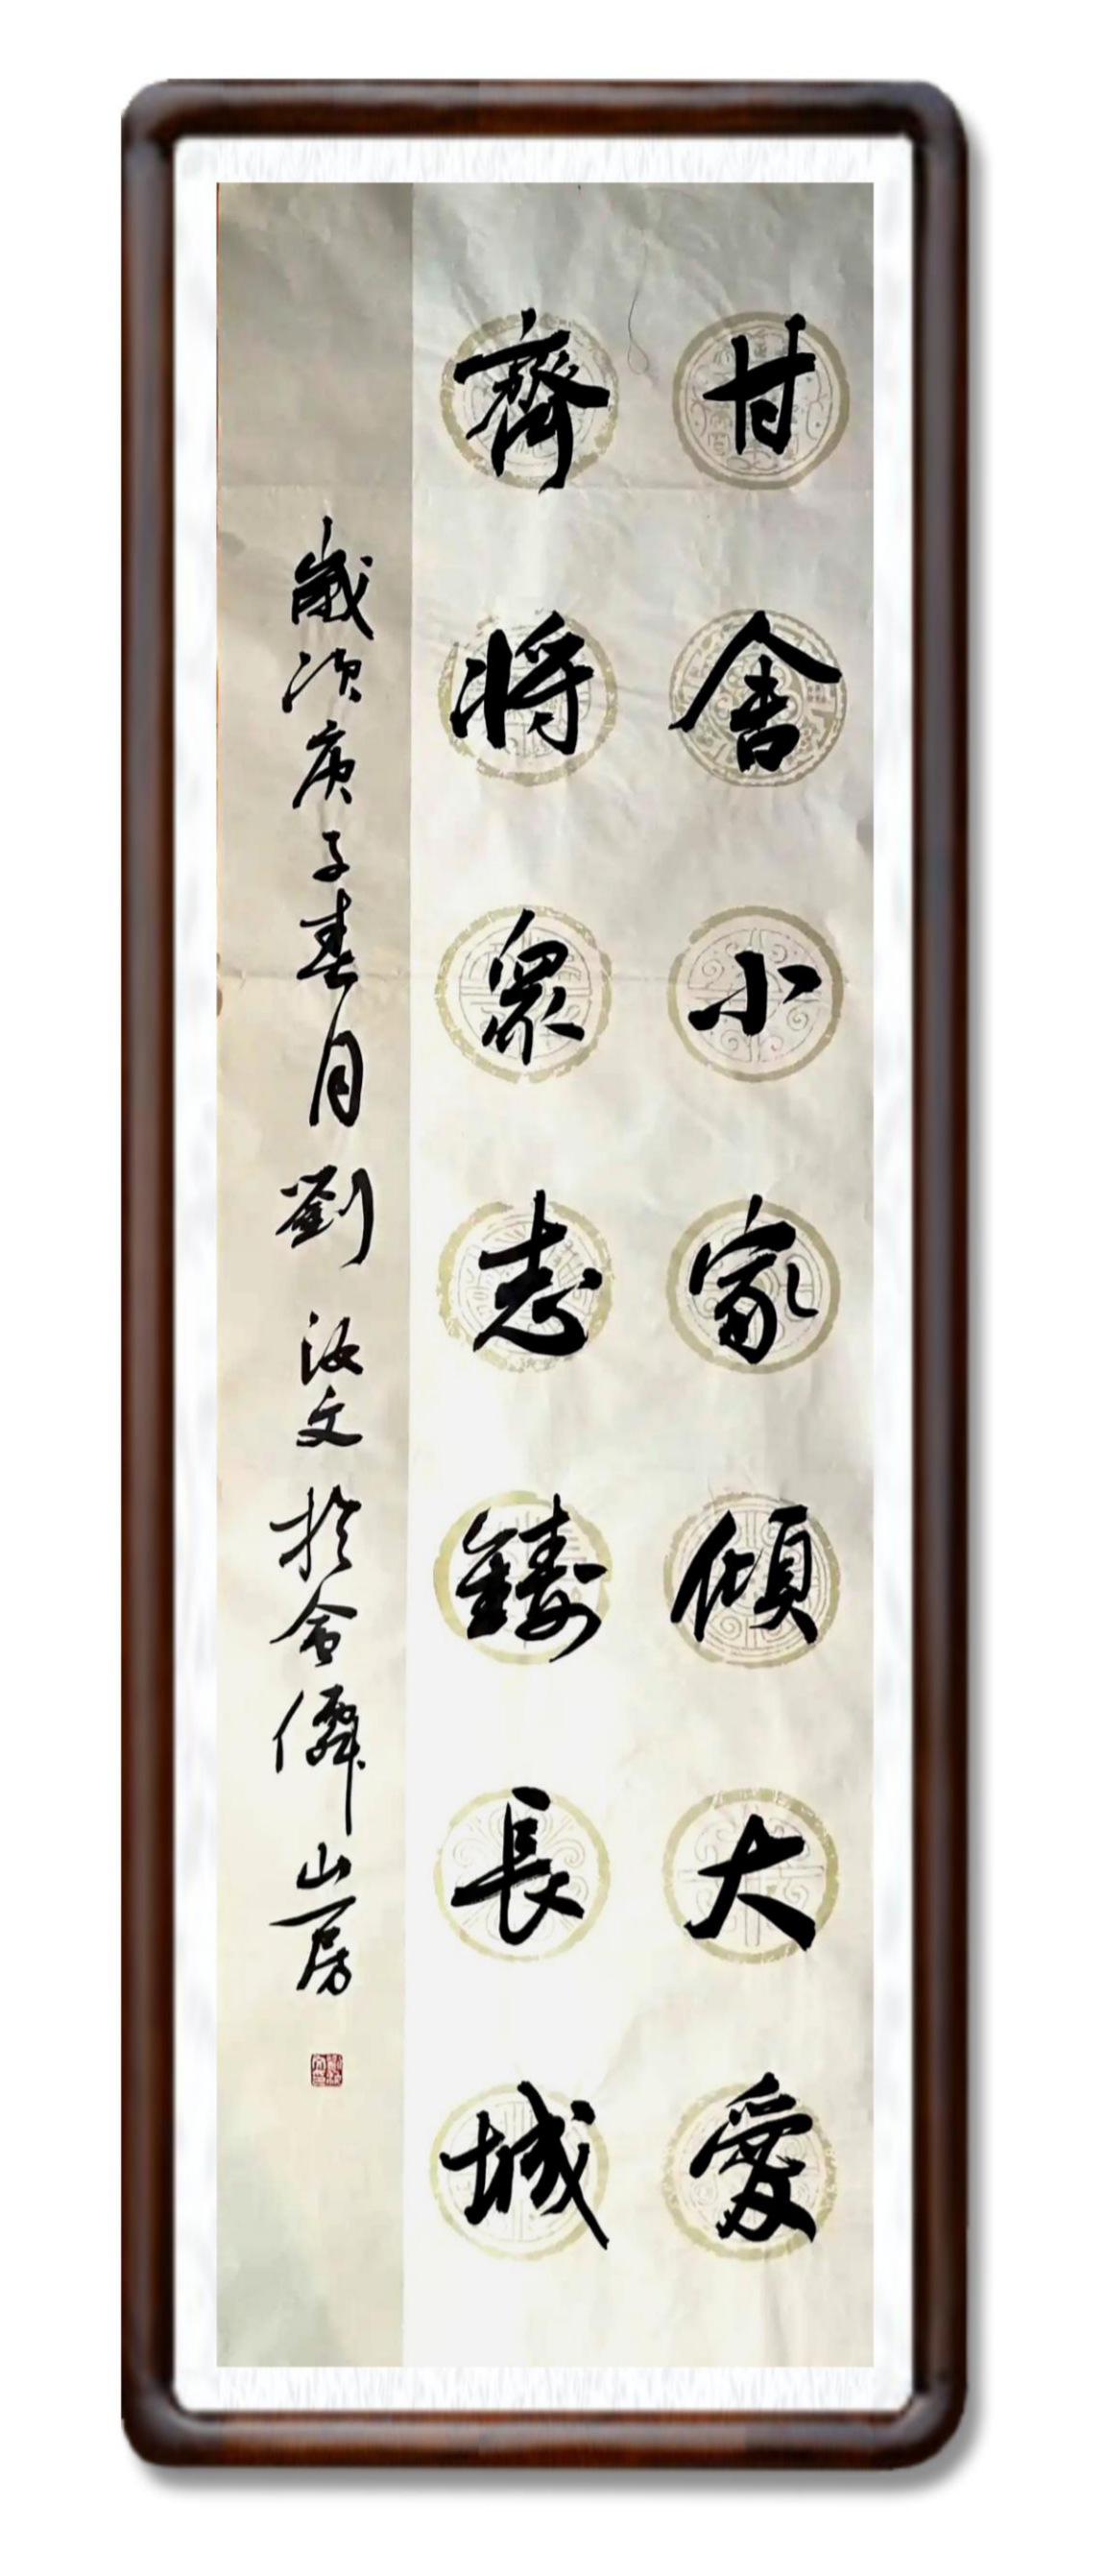 甘舍小家傾大愛
齊將眾志鑄長城
歲次庚子春月劉汝文於含僊山房